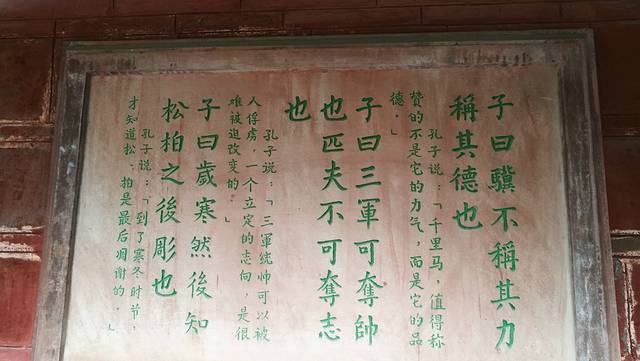 子曰驥不稱其力
稱其德也
孔子说：「千里马，值得称
赞的不是它的力气，而是它的品
德。」
子曰三軍可奪帥
也匹夫不可奪志
也
孔子说：「三軍统帅可以被
人俘虏，一个立定的志向，是很
难被迫改变的。」
子曰歲寒然後知
松柏之後彫也
孔子说：「到了寒冬时节，
才知道松、柏是最后凋谢的。」